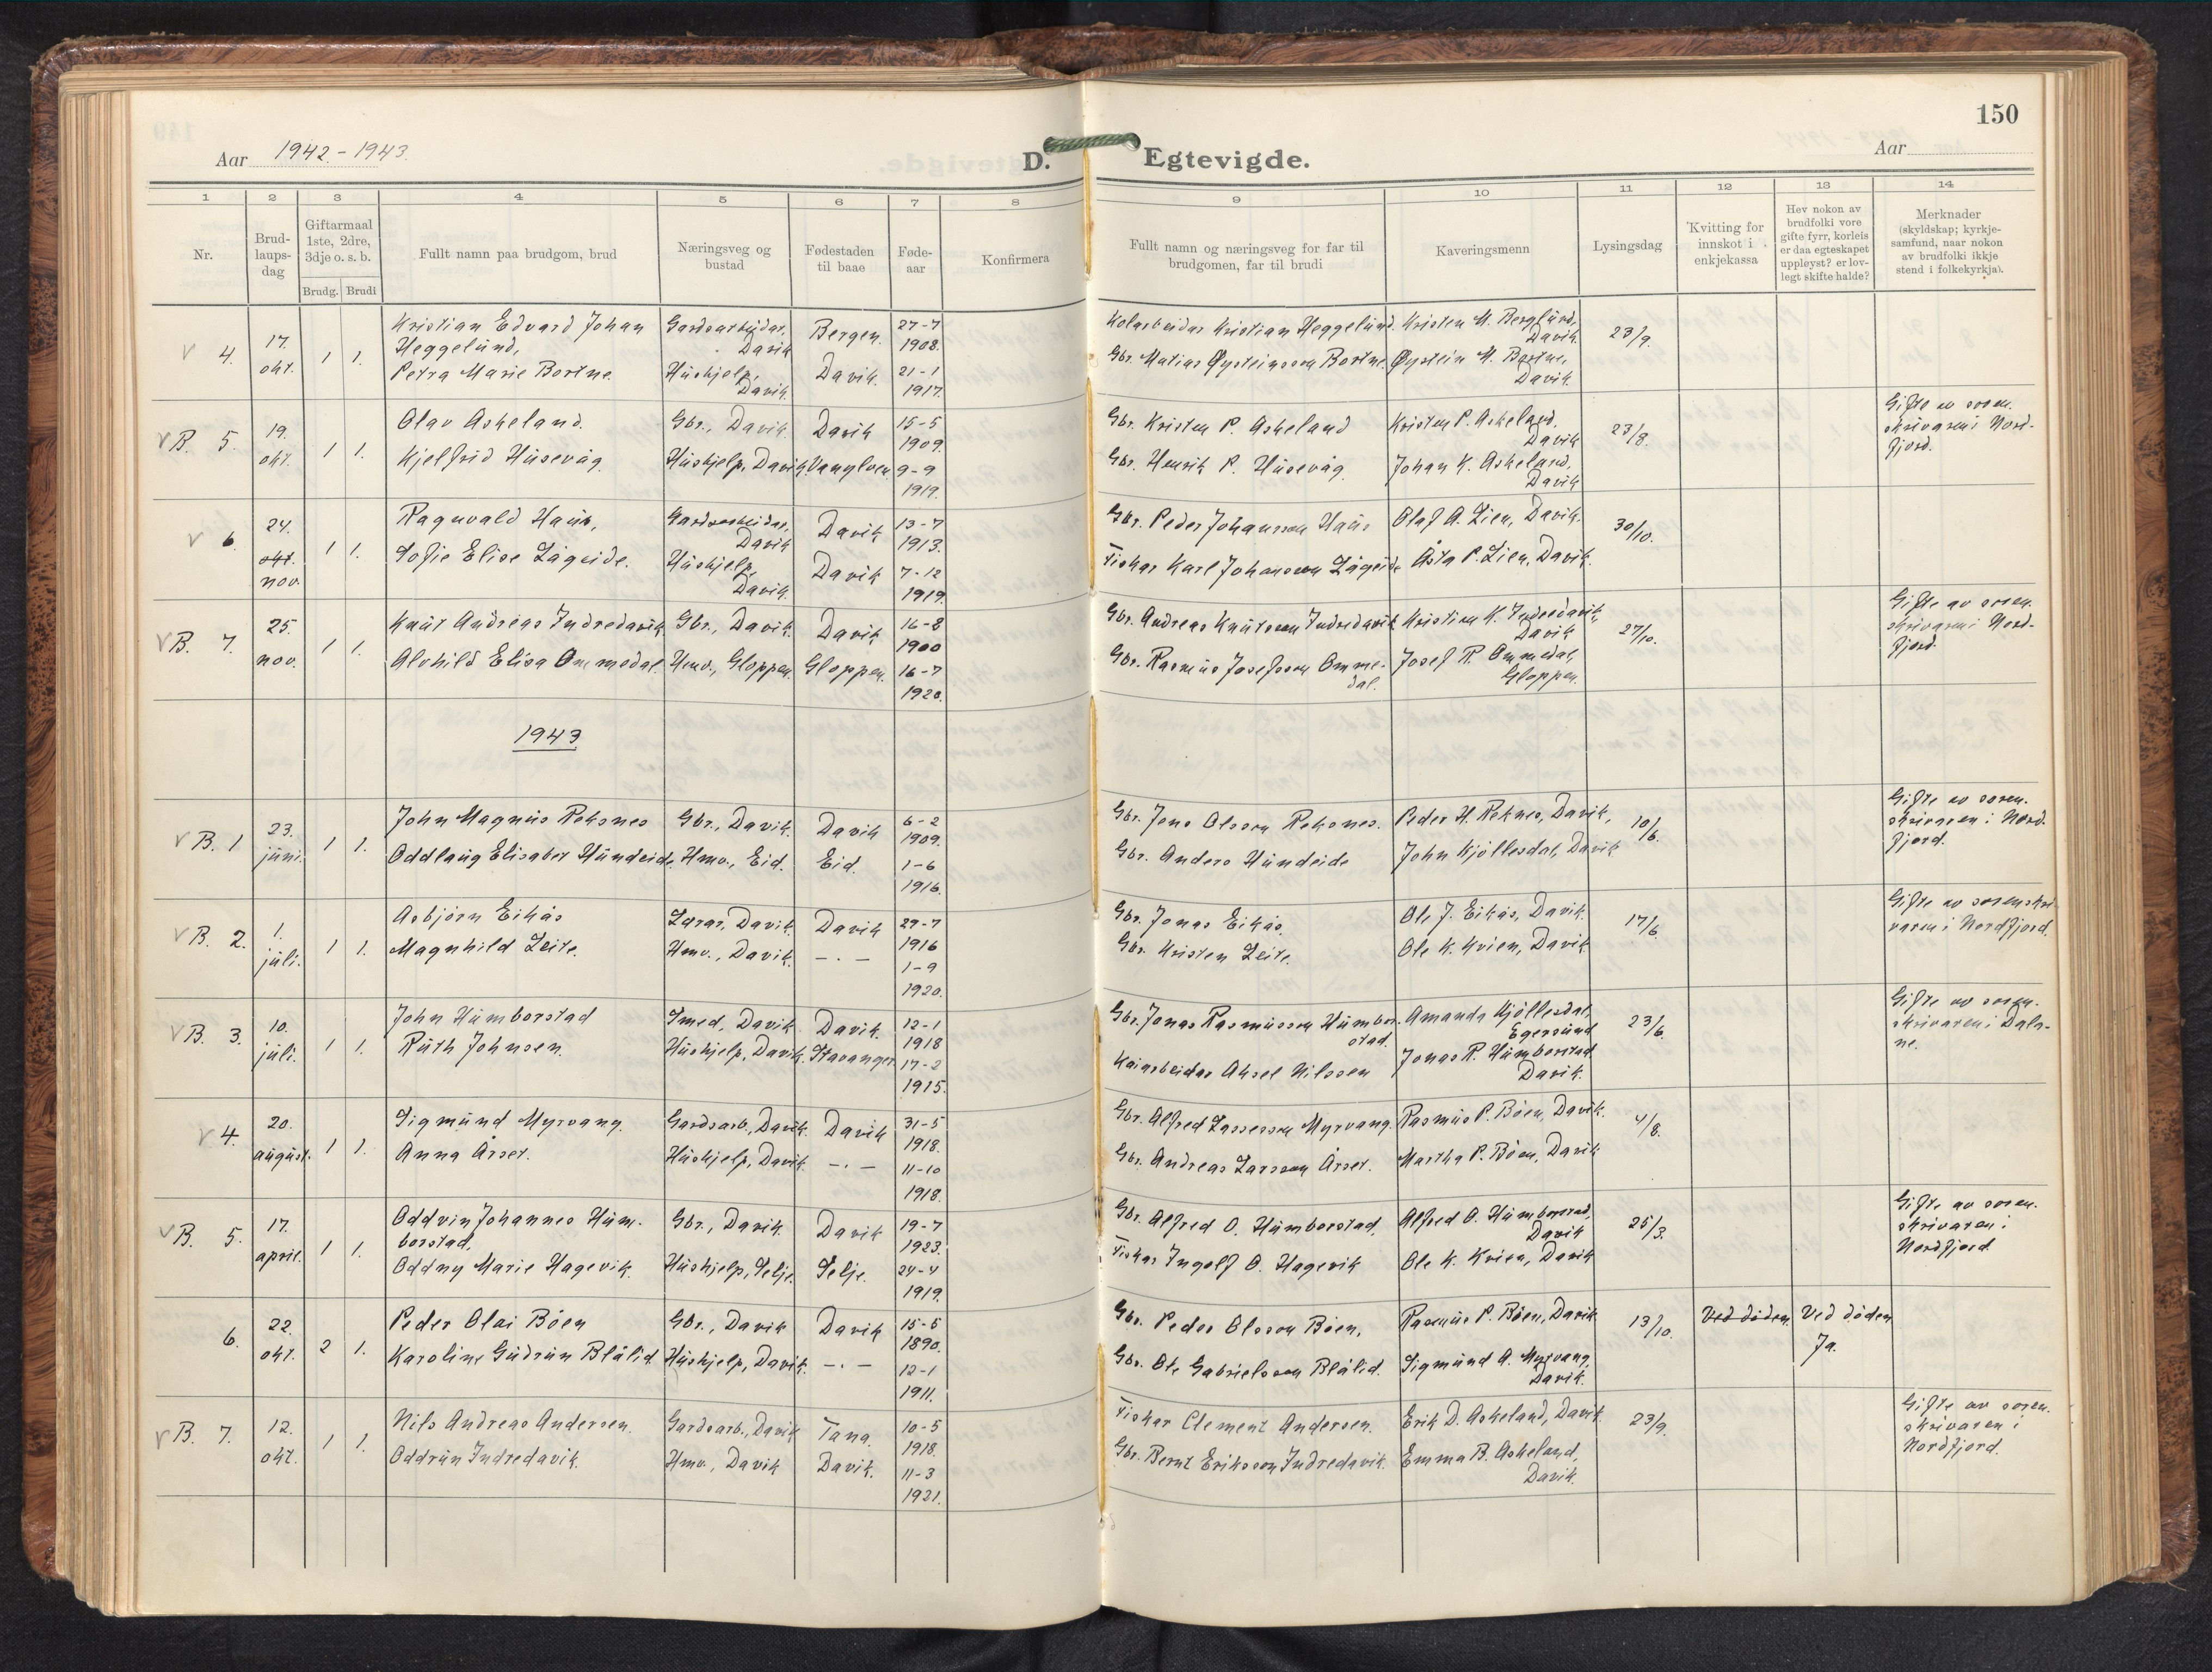 150
Aar 1942-1943. D. Egtevigde. Aar
1 2 3 4 5 6 7 8 9 10 11 12 13 14
Nr.
Brud-
laups-
dag
Giftarmaal
1ste, 2dre,
3dje o. s. b.
Brudg. Brudi
Fullt namn paa brudgom, brud
Næringsveg og
bustad
Fødestaden
til baae
Føde-
aar
Konfirmera
Fullt namn og næringsveg for far til
brudgomen, far til brudi
Kaveringsmenn
Lysingsdag
Kvitting for
innskot i
enkjekassa
Hev nokon av
brudfolki vore
gifte fyrr, korleis
er daa egteskapet
uppløyst? er lov-
legt skifte halde?
Merknader
(skyldskap; kyrkje-
samfund, naar nokon
av brudfolki ikkje
stend i folkekyrkja).
V 4. 17. okt. 1 1.
Kristian Edvard Johan
Heggelund,
Petra Marie Bortne.
Gardsarbeidar,
Davik
Hushjelp,
Davik.
Bergen.
Davik.
27-7
1908.
21-1
1917.
Kolarbeidar Kristian Heggelund.
Gbr. Matias Øysteinsson Bortne.
Kristen M. Berglund,
Davik.
Øystein M. Bortne,
Davik.
23/9.
V B. 5. 19. okt. 1 1.
Olav Askeland.
Kjelfrid Husevåg.
Gbr., Davik.
Hushjelp, Davik.
Davik
Vanylven.
15-5
1909.
9-9
1919.
Gbr. Kristen P. Askeland
Gbr. Henrik P. Husevåg.
Kristen P. Askeland.
Davik
Johan K. Askeland,
Davik
23/8.
Gifte av soren.
skrivaren i Nord-
fjord.
V 6. 24. okt. nov. 1 1.
Ragnvald Haus,
Sofie Elise Lågeide.
Gardsarbeidar,
Davik
Hushjelp,
Davik.
Davik
Davik
13-7
1913.
7-12
1919.
Gbr. Peder Johansson Haus
Fiskar Karl Johansson Lågeide
Olaf A. Lien, Davik.
Åsta P. Lien, Davik.
30/10.
V B. 7. 25. nov. 1 1.
Knut Andreas Indredavik
Alvhild Elisa Ommedal.
Gbr., Davik.
Hmv., Gloppen.
Davik
Gloppen.
16-8
1900
16-7
1920.
Gbr. Andreas Knutsson Indredavik
Gbr. Rasmus Josefsson Omme-
dal.
Kristian K. Indredavik,
Davik
Josef R. Ommedal,
Gloppen.
27/10.
Gifte av soren.
skrivaren i Nord-
fjord.
1943
V B. 1 23. juni. 1 1.
John Magnus Reksnes
Oddlaug Elisabet Hundeide.
Gbr., Davik.
Hmv., Eid.
Davik
Eid.
6-2
1909.
1-6
1916.
Gbr. Jens Olsson Reksnes.
Gbr. Anders Hundeide
Peder H. Reknes, Davik,
John Kjøllesdal, Davik
10/6.
Gifte av soren.
skrivaren i Nord.
fjord.
V B. 2. 1. juli. 1 1.
Asbjørn Eikås
Magnhild Leite.
Lærar, Davik.
Hmv., Davik.
Davik
- . -
29-7
1916
1-9
1920.
Gbr. Jonas Eikås.
Gbr. Kristen Leite.
Ole J. Eikås, Davik.
Ole K. Kvien, Davik.
17/6.
Gifte av sorenskri-
varen i Nordfjord.
V B. 3. 10. juli. 1 1.
John Humborstad
Ruth Johnsen.
Smed, Davik.
Hushjelp, Davik.
Davik.
Stavanger
12-1
1918
17-2
1915.
Gbr. Jonas Rasmusson Humbor-
stad.
Kaiarbeidar Aksel Nilssen
Amanda Kjøllesdal,
Egersund
Jonas R. Humborstad
Davik.
23/6.
Gifte av soren.
skrivaren i Dala-
ne.
V 4. 20. august. 1 1.
Sigmund Myrvang.
Anna Årset.
Gardsarb., Davik.
Hushjelp, Davik.
Davik
- . -
31-5
1918.
11-10
1918.
Gbr. Alfred Lassesson Myrvang.
Gbr. Andreas Larsson Årset.
Rasmus P. Bøen, Davik.
Martha P. Bøen, Davik
4/8.
V B. 5. 17. april. 1 1.
Oddvin Johannes Hum-
borstad,
Oddny Marie Hagevik.
Gbr., Davik.
Hushjelp, Selje.
Davik
Selje.
19-7
1923.
24-4
1919.
Gbr. Alfred O. Humborstad.
Fiskar Ingolf O. Hagevik
Alfred O. Humborstad,
Davik
Ole K. Kvien, Davik
25/3.
Gifte av soren.
skrivaren i
Nordfjord
6. 22. okt. 2 1.
Peder Olai Bøen
Karoline Gudrun Blålid.
Gbr., Davik
Hushjelp, Davik.
Davik
- . -
15-6
1890.
12-1
1911.
Gbr. Peder Olsson Bøen,
Gbr. Ole Gabrielsson Blålid.
Rasmus P. Bøen, Davik
Sigmund A. Myrvang,
Davik.
13/10.
Ved døden.
Ved døden
Ja.
V B. 7. 12. okt. 1 1.
Nils Andreas Andersen.
Oddrun Indredavik.
Gardsarb., Davik
Hmv., Davik
Tana.
Davik.
10-5
1918.
11-3
1921.
Fiskar Clement Andersen.
Gbr. Bernt Eriksson Indredavik.
Erik D. Askeland, Davik
Emma B. Askeland,
Davik.
23/9.
Gifte av soren.
skrivaren i
Nordfjord.